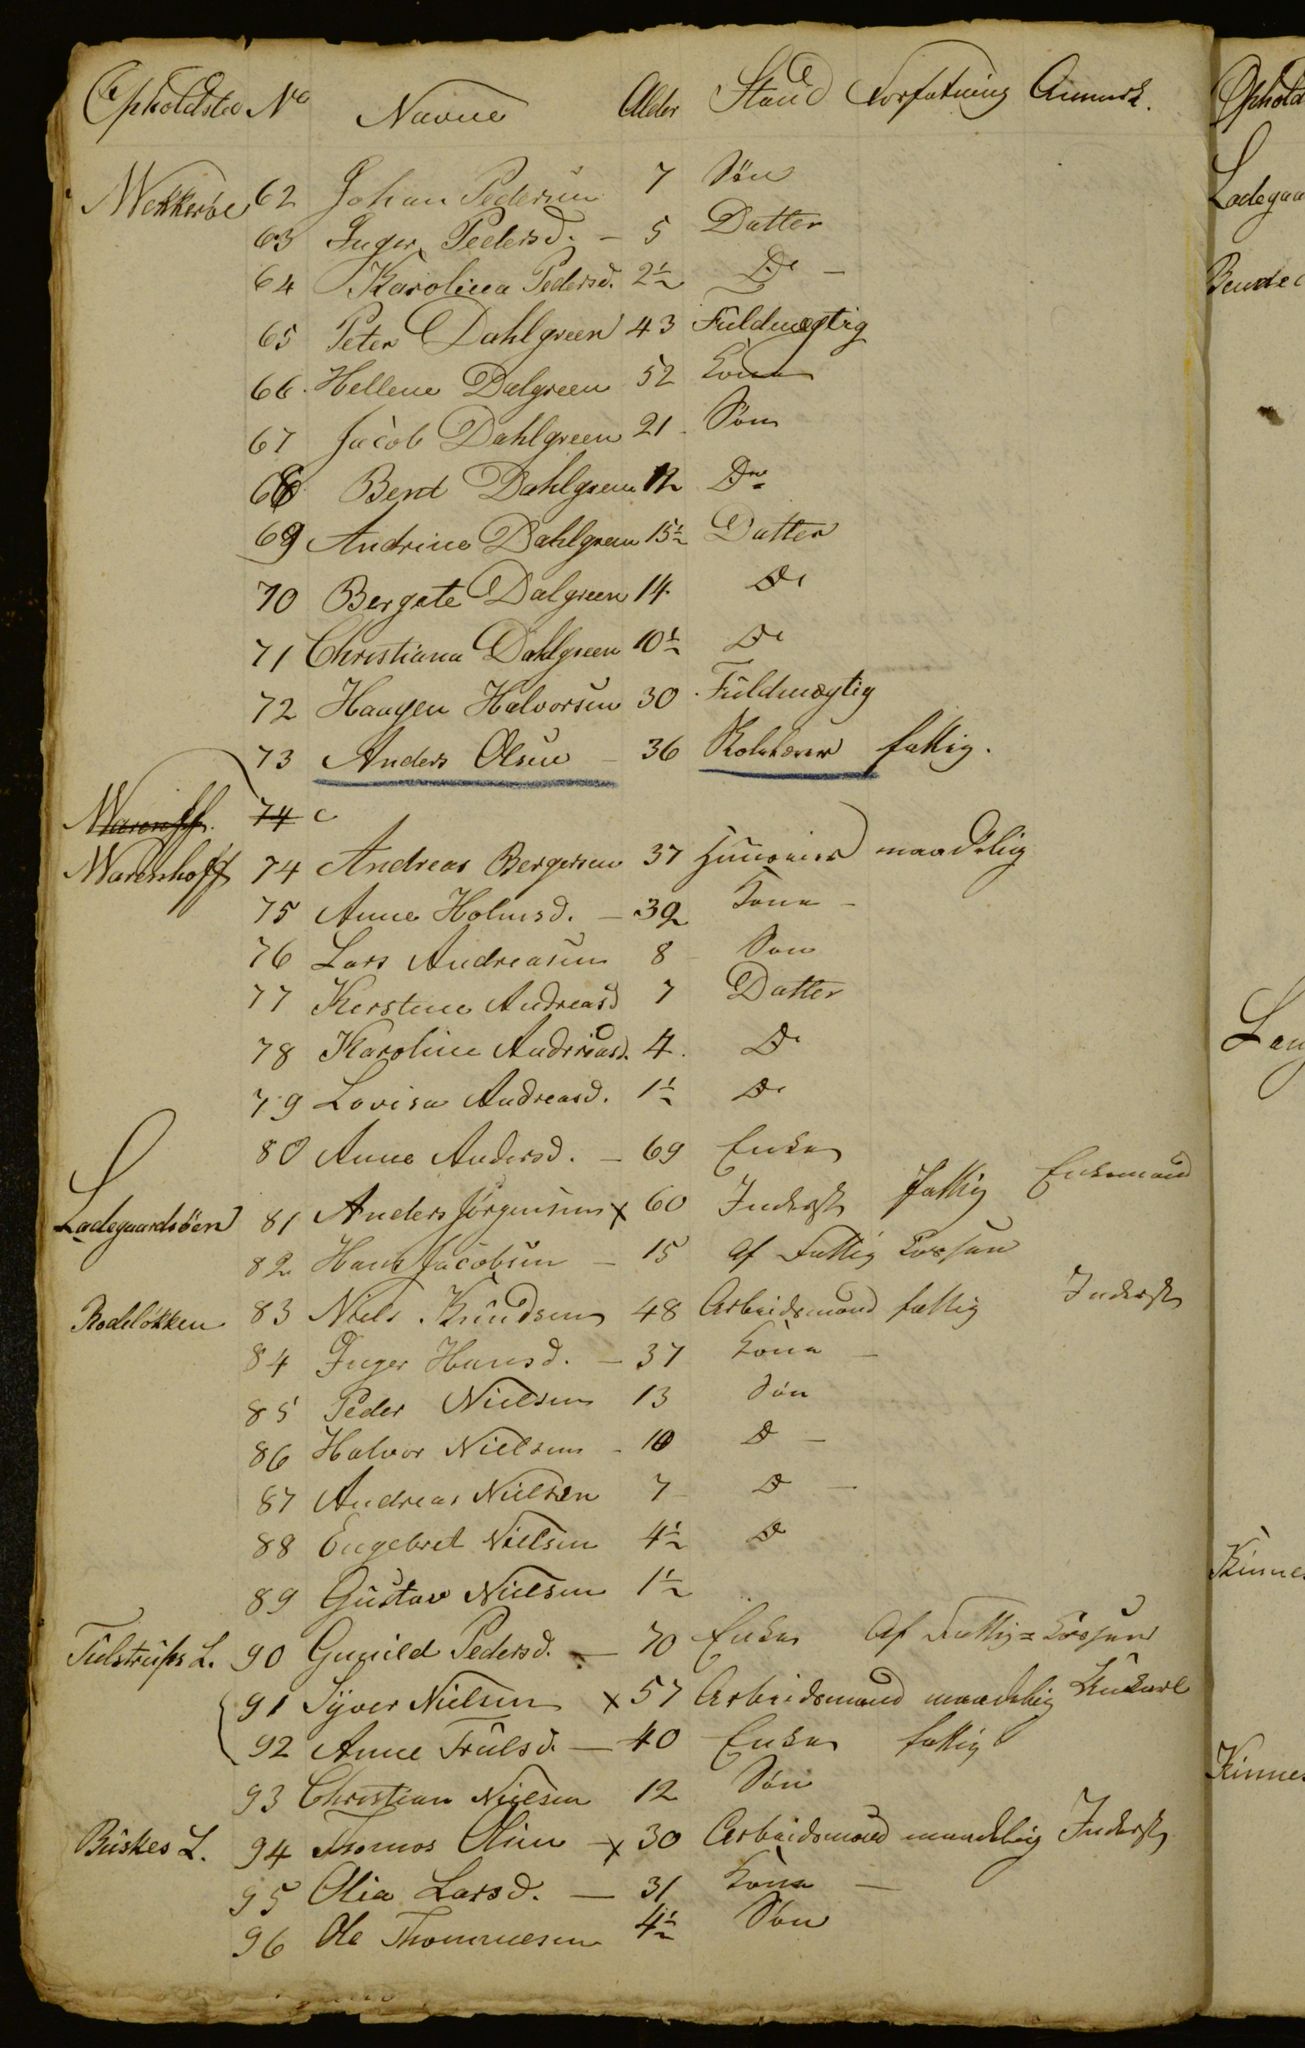 Opholdsted No Navne Alder Stand Forfatning Anmerk.
Wekkerøe 62 Johan Pedersen 7 Søn
63 Inger Pedersd. - 5 Datter
64 Karolina Pedersd. 2½ Do -
65 Peter Dahlgreen 43 Fuldmægtig
66. Hellene Dalgreen 52 Kone
67 Jacob Dahlgreen 21 Søn
68 Bent Dahlgreen Do
69 Andrine Dahlgreen 15½ Datter
70 Bergete Dalgreen 14 Do
71 Christiana Dahlgreen 10½ Do
72 Haagen Halvorsen 30 Fuldmægtig
73 Anders Olsen - 36 fattig.
74
Warenshoff 74 Andreas Bergersen 37 maadelig
75 Anne Holmsd. - 39 Kone -
76 Lars Andreasen 8 Søn
77 Kerstine Andreasd 7 Datter
78 Karoline Andreasd. 4. Do
79 Lovisa Andreasd. 1½ Do
80 Anne Andersd. - 69 Enke
Ladegaardsøen 81 Anders Jørgensen x 60 Inderst fattig Enkemand
82 Hans Jacobsen - 15 af Fattig Kassen
Rodeløkken 83 Niels Knudsen 48 Arbeidsmand fattig Inderst
84 Inger Hansd. - 37 Kone -
85 Peder Nielsen 13 Søn
86 Halvor Nielsen - 10 Do -
87 Andreas Nielsen 7 Do -
88 Engebret Nielsen 4½ Do
89 Gustav Nielsen 1½
Tulstrups L. 90 Gunild Pedersd. - 70 Enke Af Fattig=Kassen
91 Syver Nielsen x 57 Arbeidsmand maadelig
92 Anne Trulsd. - 40 Enke fattig
93 Christian Nielsen 12 Søn
Buskes L. 94 Thomas Olsen - x 30 Arbeidsmand maadelig Inderst
95 Olia Larsd. - 31 Kone -
96 Ole Thommesen 4½ Søn
Ophold
Ladegaa
Lang
Kinne
Kinne